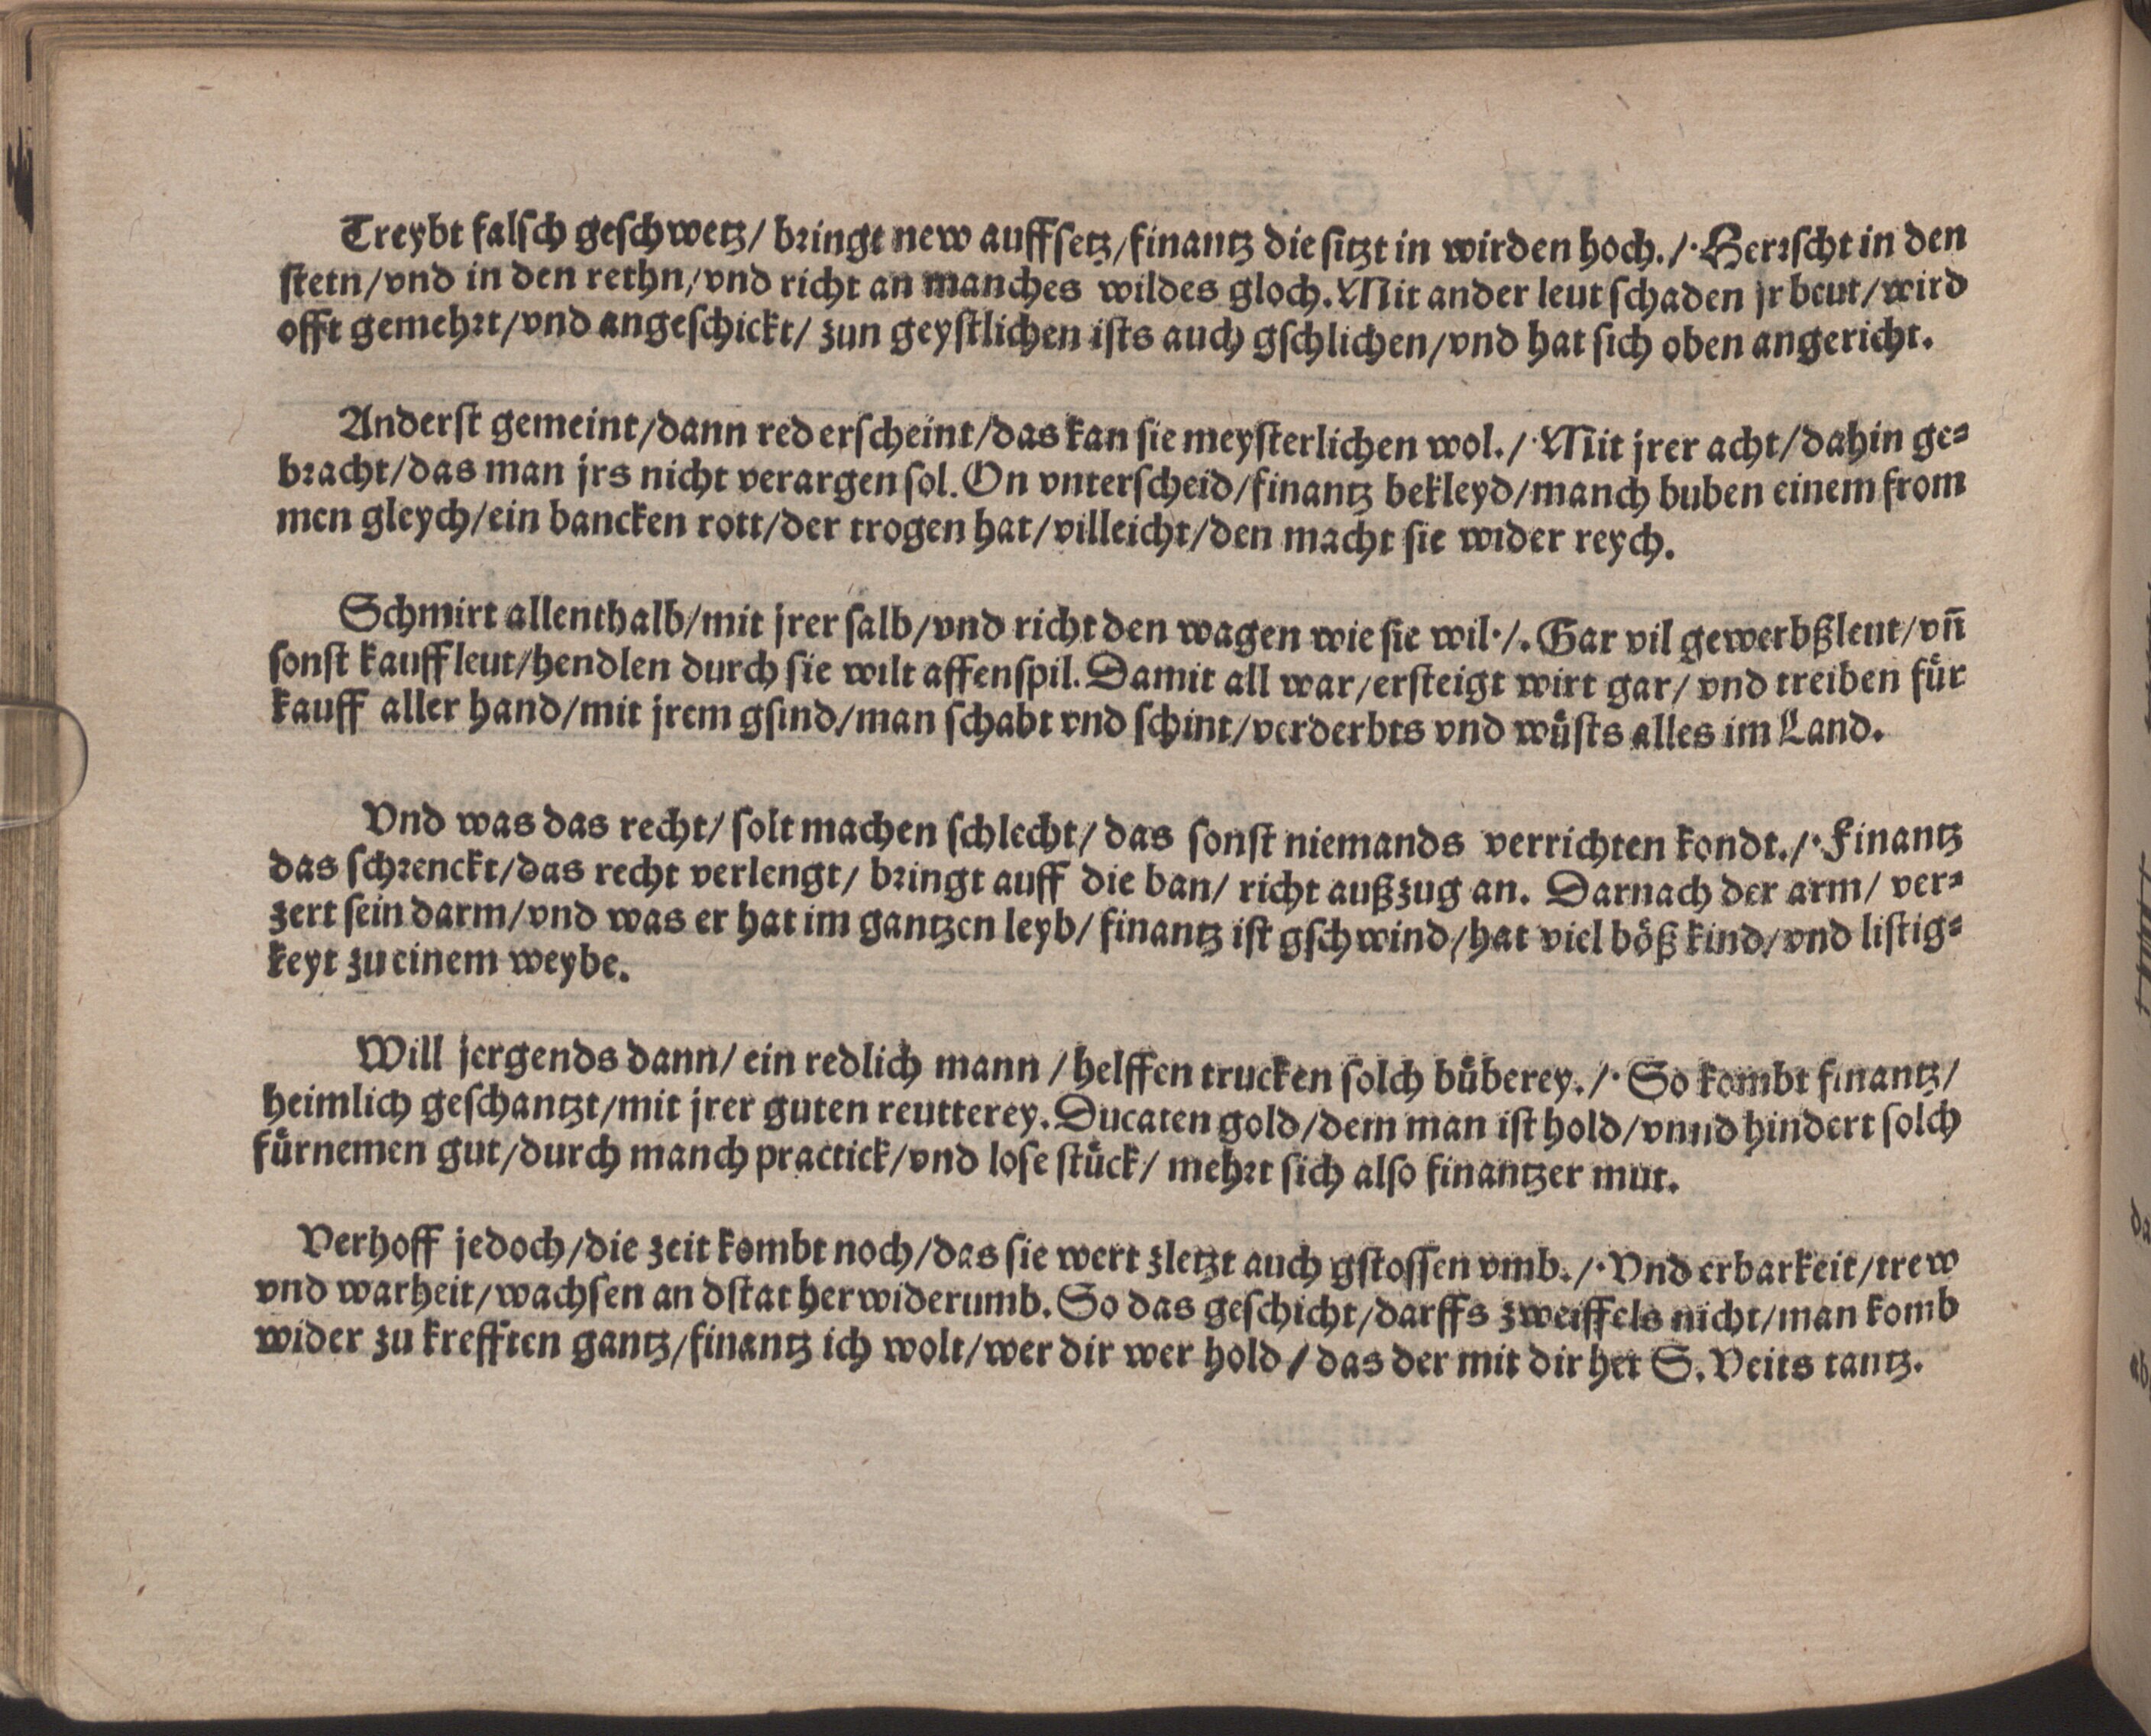 Treybt falſch geſchwetz/ bꝛingt new auffſetz/finantz die ſitzt in wirden hoch./· Herꝛſcht in den
ſtetn/vnd in den rethn/vnd richt an manches wildes gloch. Mit ander leut ſchaden jr beut/wird
offt gemehꝛt/vnd angeſchickt/ zun geyſtlichen iſts auch gſchlichen/vnd hat ſich oben angericht.
Anderſt gemeint/dann red erſcheint/das kan ſie meyſterlichen wol./· Mit jrer acht/dahin ge⸗
bꝛacht/das man jrs nicht verargen ſol. On vnterſcheid/finantz bekleyd/manch buben einem from
men gleych/ein bancken rott/der trogen hat/villeicht/den macht ſie wider reych.
Schmirt allenthalb/mit jrer ſalb/vnd richt den wagen wie ſie wil·/. Gar vil gewerbßleut/vñ
ſonſt kauffleut/hendlen durch ſie wilt affenſpil. Damit all war/erſteigt wirt gar/ vnd treiben fuͤr
kauff aller hand/mit jrem gſind/man ſchabt vnd ſchint/verderbts vnd wuͤſts alles im Land.
Vnd was das recht/ ſolt machen ſchlecht/ das ſonſt niemands verrichten kondt./· Finantz
das ſchꝛenckt/das recht verlengt/ bꝛingt auff die ban/ richt außzug an. Darnach der arm/ ver⸗
zert ſein darm/vnd was er hat im gantzen leyb/ finantz iſt gſchwind/hat viel boͤß kind/vnd liſtig⸗
keyt zu einem weybe.
Will jergends dann/ ein redlich mann /helffen trucken ſolch buͤberey./· So kombt finantz/
heimlich geſchantzt/mit jrer guten reutterey. Ducaten gold/dem man iſt hold/vnnd hindert ſolch
fuͤrnemen gut/durch manch practick/vnd loſe ſtuͤck/ mehꝛt ſich alſo finantzer mut.
Verhoff jedoch/die zeit kombt noch/das ſie wert zletzt auch gſtoſſen vmb./· Vnd erbarkeit/trew
vnd warheit/wachſen an dſtat herwiderumb. So das geſchicht/darffs zweiffels nicht/man komb
wider zu krefften gantz/finantz ich wolt/wer dir wer hold/das der mit dir het S. Veits tantz.